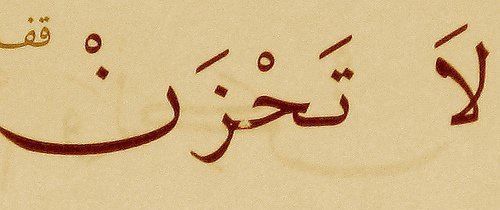 لَا تَحْزَنْ قف